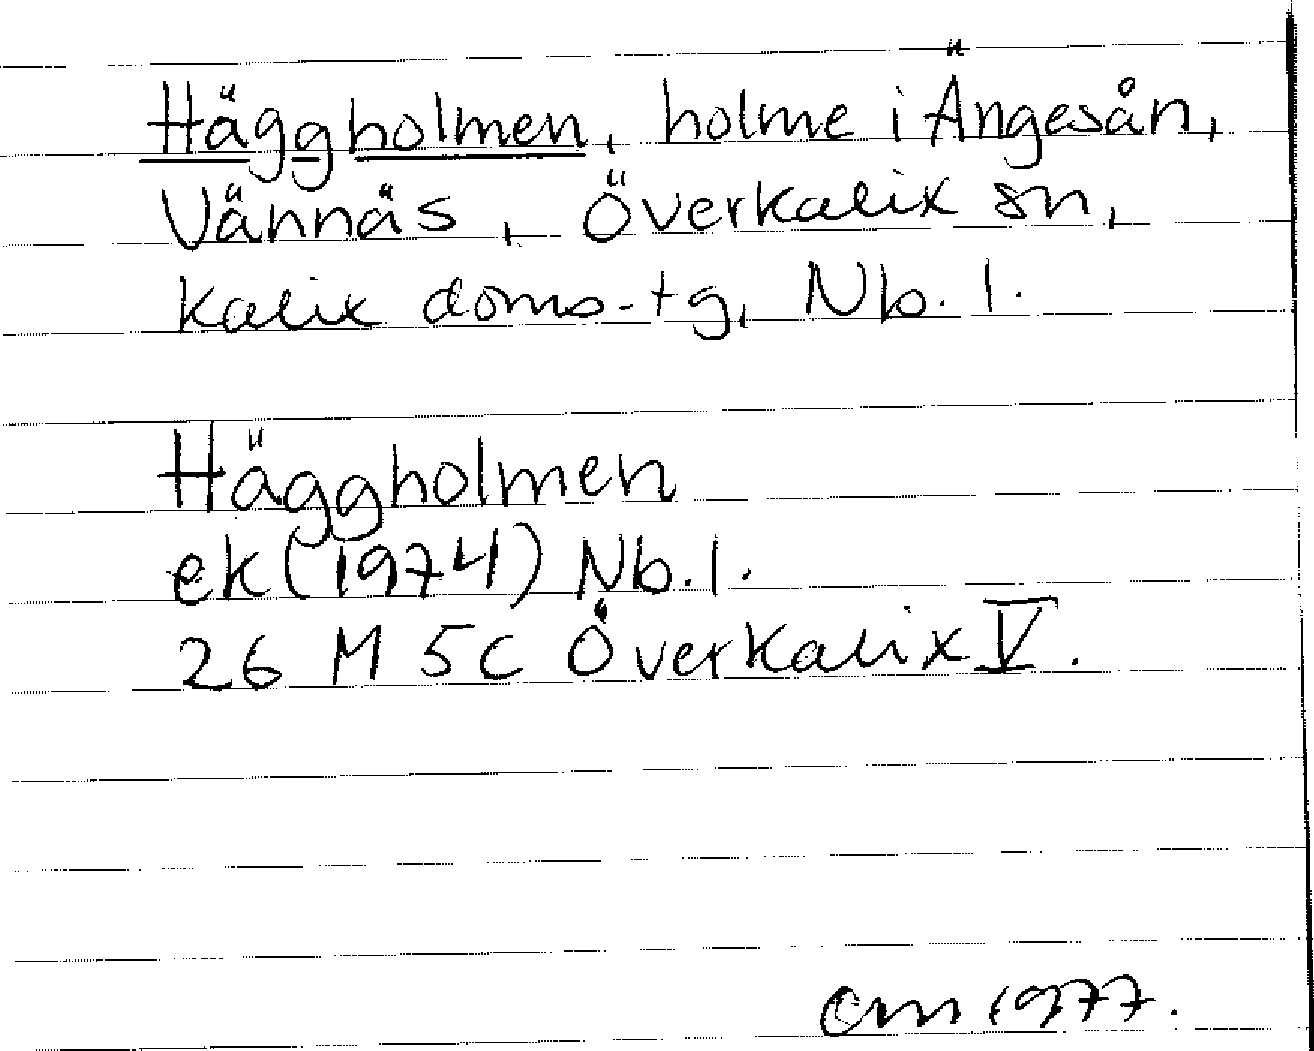 Häggholmen, holme i Ängesån,
Vännäs, Överkalix sn,
Kalix doms-tg, Nb. l.
Häggholmen
ek (1974) Nb. l.
26 M 5c Överkalix V.
Om 1977.